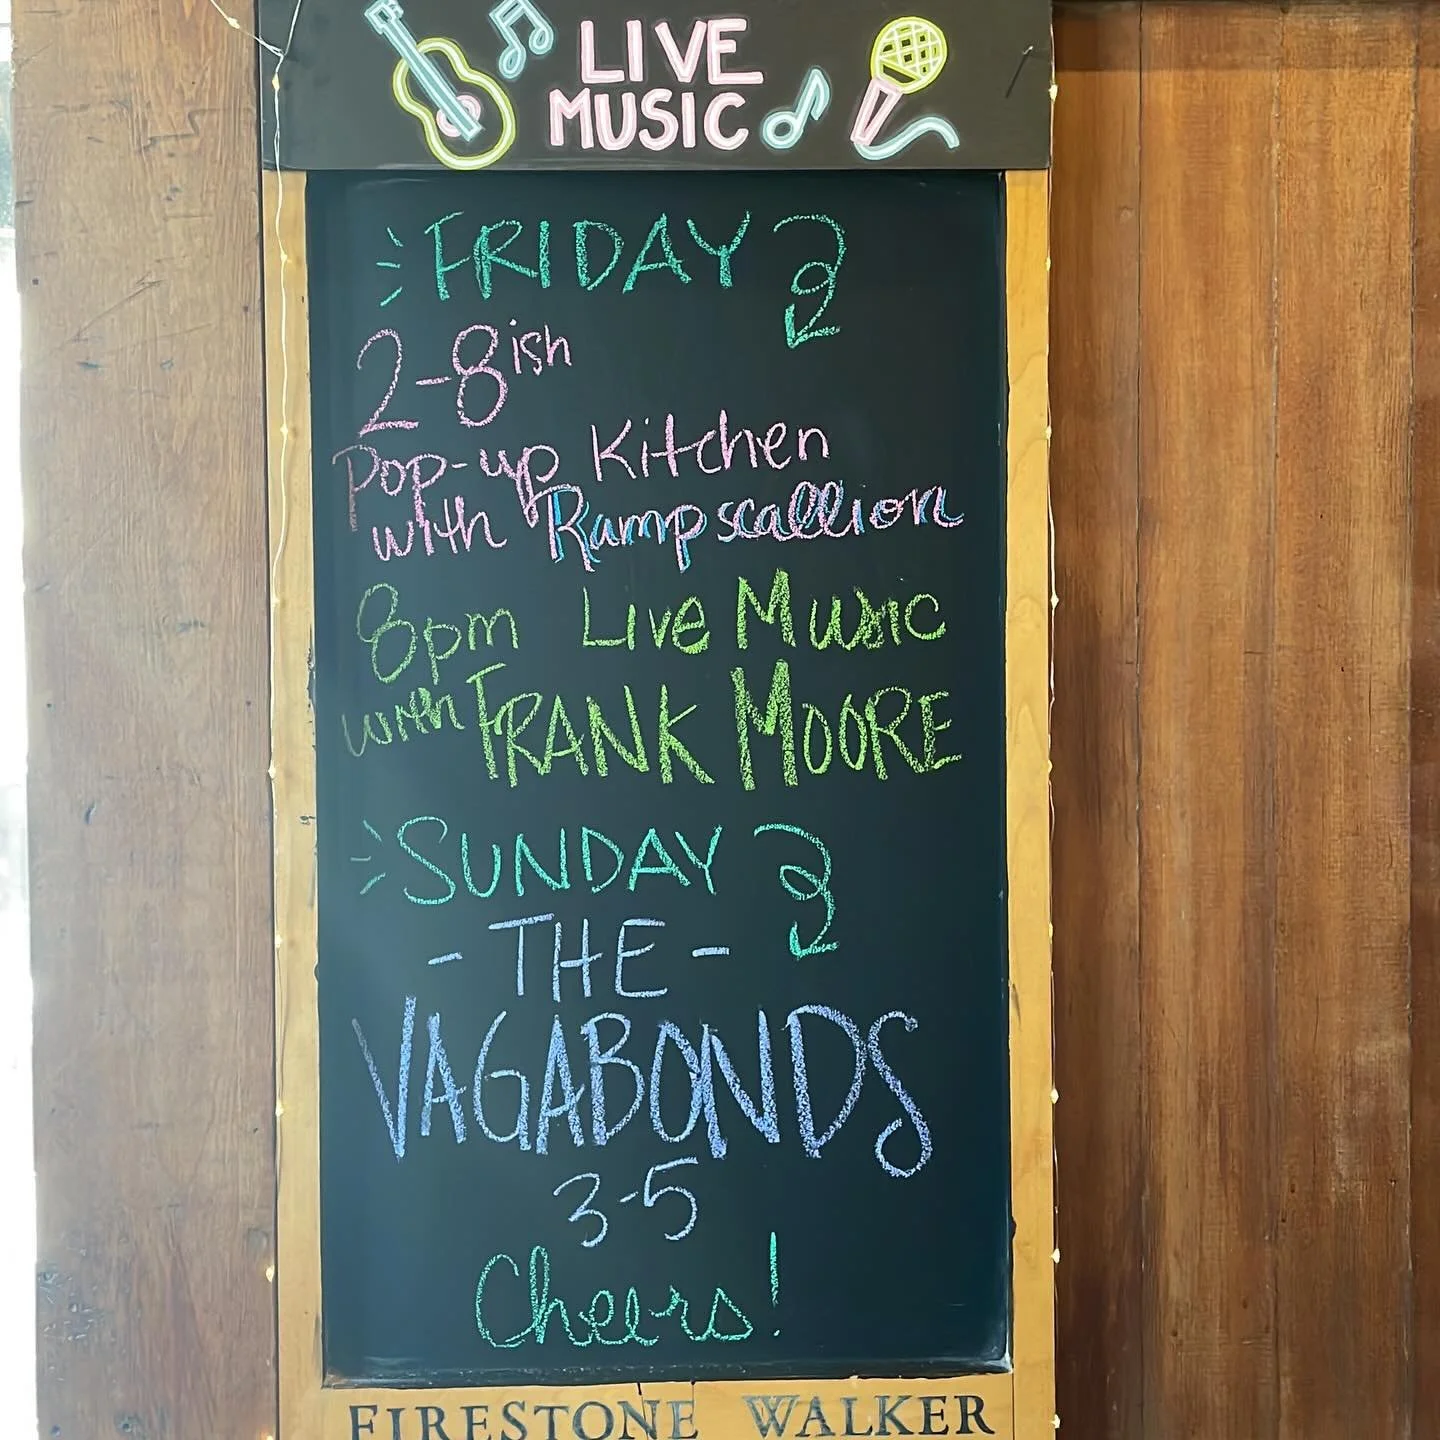 LIVE
MUSIC
FRIDAY
2-8ish
Pop-up Kitchen
with Rampscallion
8pm Live Music
with FRANK MOORE
SUNDAY
- THE -
VAGABONDS
3-5
Cheers!
FIRESTONE WALKER